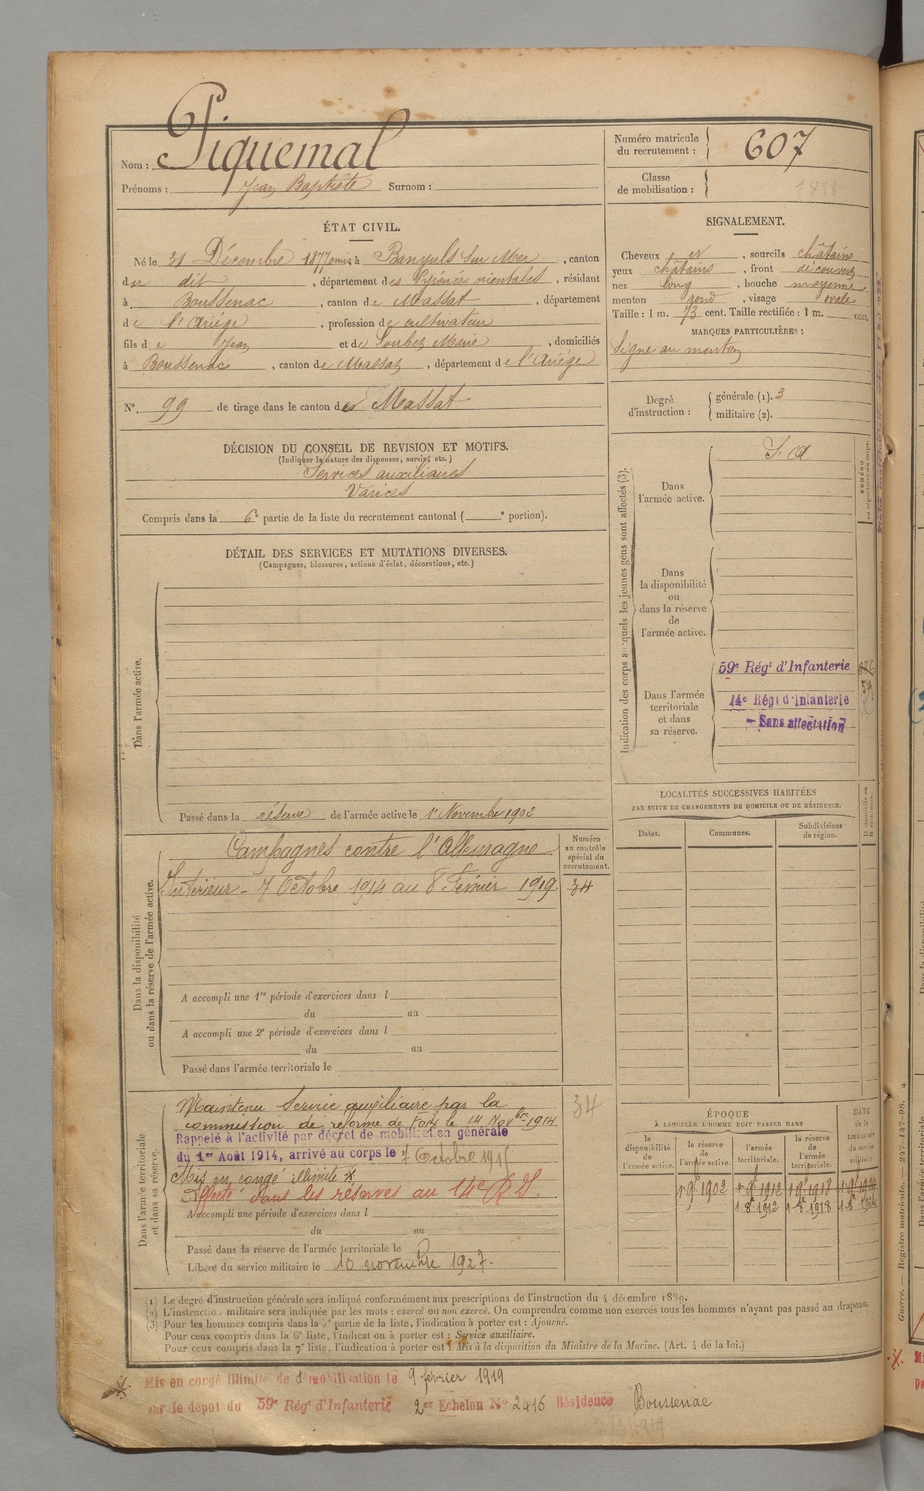 Nom : Piquemal
Prénoms : Jean Baptiste Surnom :
Numéro matricule du recrutement : 607
Classe de mobilisation :
ÉTAT CIVIL.
Né le 31 Décembre 1877 à Banyuls sur Mer, canton
du dit, département des Pyrénées orientales, résidant
à Boussenac, canton de Massat, département
de l'Ariége, profession de cultivateur
fils de Jean et de Soubez Marie, domiciliés
à Boussenac, canton de Massat, département de l'Ariége
N° 99 de tirage dans le canton de Massat
SIGNALEMENT.
Cheveux et, sourcils châtains
yeux châtains, front découvert
nez long, bouche moyenne
menton rond, visage ovale
Taille : 1 m. 73 cent. Taille rectifiée : 1 m. cent.
MARQUES PARTICULIÈRES :
Signe au menton
Degré d'instruction : générale (1). 3
militaire (2).
DÉCISION DU CONSEIL DE REVISION ET MOTIFS.
(Indiquer la nature des dispenses, sursis, etc.)
Services auxiliaires
Varices
Compris dans la 6e partie de la liste du recrutement cantonal ( e portion).
DÉTAIL DES SERVICES ET MUTATIONS DIVERSES.
(Campagnes, blessures, actions d'éclat, décorations, etc.)
Dans l'armée active.
Passé dans la réserve de l'armée active le 1er Novembre 1902
Indication des corps auxquels les jeunes gens sont affectés (3).
Dans l'armée active.
S. A
Dans la disponibilité ou dans la réserve de l'armée active.
Dans l'armée territoriale et dans sa réserve.
59e Régt d'Infanterie
14e Régt d'Infanterie
Sans affectation
Dans la disponibilité ou dans la réserve de l'armée active.
Numéro au contrôle spécial du recrutement.
Campagnes contre l'Allemagne
Intérieur - 7 Octobre 1914 au 8 Février 1919. 34
A accompli une 1re période d'exercices dans l
du au
A accompli une 2e période d'exercices dans l
du au
Passé dans l'armée territoriale le
LOCALITÉS SUCCESSIVES HABITÉES
PAR SUITE DE CHANGEMENTS DE DOMICILE OU DE RÉSIDENCE.
Dates. Communes. Subdivisions de région.
Dans l'armée territoriale et dans sa réserve.
Maintenu Service auxiliaire par la 34
commission de réforme de Foix le 14 Novbre 1914
Rappelé à l'activité par décret de mobilisation générale
du 1er Août 1914, arrivé au corps le 7 Octobre 1914
Mis en congé illimité
Affecté dans les réserves au 14e R.I.
A accompli une période d'exercices dans l
du au
Passé dans la réserve de l'armée territoriale le
Libéré du service militaire le 10 novembre 1927.
ÉPOQUE
À LAQUELLE L'HOMME DOIT PASSER DANS
la disponibilité de l'armée active. la réserve de l'armée active. l'armée territoriale. la réserve de l'armée territoriale.
1 9e 1902 1 9e 1912 1 9e 1918
1 8e 1912 1 8e 1918
(1) Le degré d'instruction générale sera indiqué conformément aux prescriptions de l'instruction du 4 décembre 1889.
(2) L'instruction militaire sera indiquée par les mots : exercé ou non exercé. On comprendra comme non exercés tous les hommes n'ayant pas passé au drapeau.
(3) Pour les hommes compris dans la 5e partie de la liste, l'indication à porter est : Ajourné.
Pour ceux compris dans la 6e liste, l'indication à porter est : Service auxiliaire.
Pour ceux compris dans la 7e liste, l'indication à porter est : Mis à la disposition du Ministre de la Marine. (Art. 4 de la loi.)
Mis en congé illimité de démobilisation le 9 février 1919
par le dépôt du 59e Régt d'Infanterie 2er Echelon No 2416 Résidence Boussenac